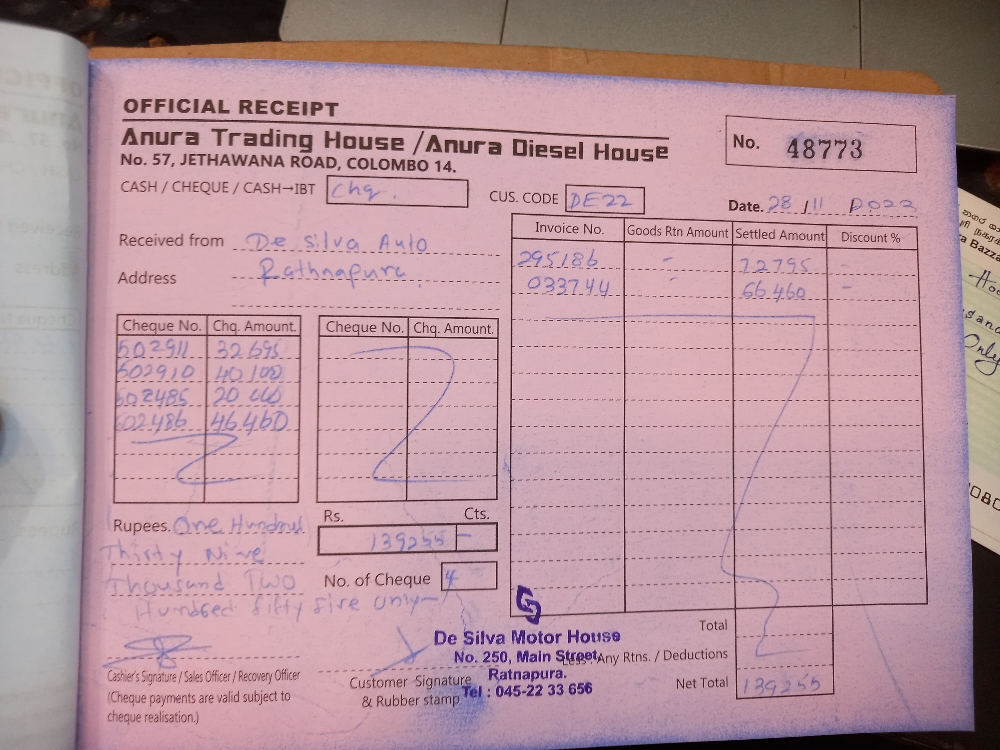 OFFICIAL RECEIPT
Anura Trading House / Anura Diesel House
No. 57, JETHAWANA ROAD, COLOMBO 14.
No. 48773
CASH / CHEQUE / CASH→IBT Chq.
CUS. CODE DE22
Date. 28 / 11 2022
Received from De Silva Auto
Address Rathnapura.
Invoice No. Goods Rtn Amount Settled Amount Discount %
295186 - 72795 -
033744 - 66460 -
Cheque No. Chq. Amount. Cheque No. Chq. Amount.
502911 32695
502910 40100
602485 20 000
602486 46460
Rupees. One Hundred
Thirty Nine
Thousand Two
Hundred fifty five only—
Rs. Cts.
139255 —
No. of Cheque 4
De Silva Motor House
No. 250, Main Street,
Ratnapura.
Tel : 045-22 33 656
Total
Less: Any Rtns. / Deductions
Net Total 139255
Cashier's Signature / Sales Officer / Recovery Officer
(Cheque payments are valid subject to
cheque realisation.)
Customer Signature
& Rubber stamp
a Bazza
Only